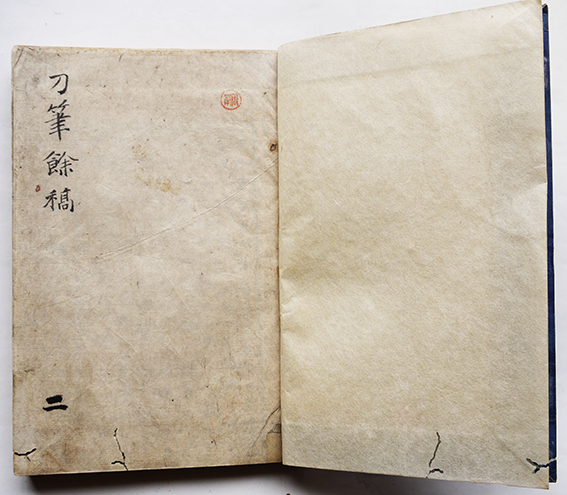 刀筆餘稿
二